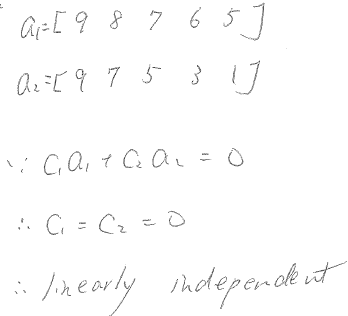 a₁=[ 9 8 7 6 5 ]
a₂=[ 9 7 5 3 1 ]
∵ C₁a₁ + C₂a₂ = 0
∴ C₁ = C₂ = 0
∴ linearly independent